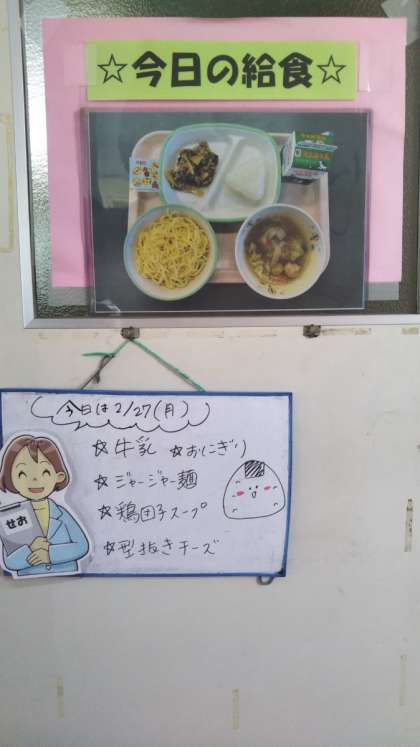 ☆今日の給食☆
今日は2/27(月)
☆牛乳 ☆おにぎり
☆ジャージャー麺
☆鶏団子スープ
☆型抜きチーズ
せお